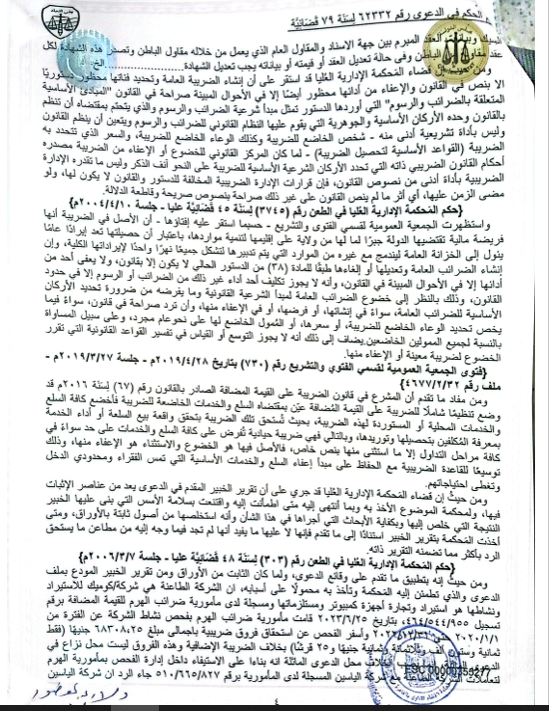 الحكم في الدعوى رقم ٦٢٣٣٢ لِسَنة ٧٩ قَضَائيَّة
العقد المبرم بين جهة الاسناد والمقاول العام الذي يعمل من خلاله مقاول الباطن وتصدر هذه الشهادة لكل
عقد الباطن وفى حالة تعديل العقد أو قيمته أو بياناته يجب تعديل الشهادة
قضاء المحكمة الإدارية العُليا قد استقر على أن إنشاء الضريبة العامة وتحديد فئاتها محظور دستوريًا
إلا بنص في القانون والإعفاء من أدائها محظور أيضًا إلا في الأحوال المبينة صراحة في القانون "المبادئ الأساسية
المتعلقة بالضرائب والرسوم" التي أوردها الدستور تمثل مبدأ شرعية الضرائب والرسوم والذي يتحتم بمقتضاه أن تنظم
بالقانون وحده الأركان الأساسية والجوهرية التي يقوم عليها النظام القانوني للضرائب والرسوم ويتعين أن ينظم القانون
وليس بأداة تشريعية أدنى منه - شخص الخاضع للضريبة وكذلك الوعاء الخاضع للضريبة، والسعر الذي تتحدد به
الضريبة (القواعد الأساسية لتحصيل الضريبة) - لما كان المركز القانوني للخضوع أو الإعفاء من الضريبة مصدره
أحكام القانون الضريبي ذاته التي تحدد الأركان الشرعية الأساسية للضريبة على النحو آنف الذكر وليس ما تقدره الإدارة
الضريبية بأداة أدنى من نصوص القانون، فإن قرارات الإدارة الضريبية المخالفة للدستور والقانون لا يكون لها، ولو
مضى الزمن عليها، أي أثر ما لم ينص القانون على غير ذلك صراحة بنصوص صريحة وقاطعة الدلالة.
{حكم المَحكمة الإدارية العُليا في الطعن رقم (٣٧٤٥) لِسَنة ٤٥ قَضَائيَّة عليا - جلسة ٢٠٠٤/٤/١٠م}
واستظهرت الجمعية العمومية لقسمي الفتوى والتشريع - حسبما استقر عليه إفتاؤها - أن الأصل في الضريبة أنها
فريضة مالية تقتضيها الدولة جبرًا لما لها من ولاية على إقليمها لتنمية مواردها، باعتبار أن حصيلتها تعد إيرادًا عامًا
يئول إلى الخزانة العامة ليندمج مع غيره من الموارد التي يتم تدبيرها لتشكل جميعًا نهرًا واحدًا لإيراداتها الكلية، وإن
إنشاء الضرائب العامة وتعديلها أو إلغاءها طبقًا للمادة (٣٨) من الدستور الحالي لا يكون إلا بقانون، ولا يعفى أحد من
أدائها إلا في الأحوال المبينة في القانون، وأنه لا يجوز تكليف أحد أداء غير ذلك من الضرائب أو الرسوم إلا في حدود
القانون، وذلك بالنظر إلى خضوع الضرائب العامة لمبدأ الشرعية القانونية وما يفرضه من ضرورة تحديد الأركان
الأساسية للضرائب العامة، سواءً في إنشائها، أو فرضها، أو في الإعفاء منها، وأن ترد صراحة في قانون، سواءً فيما
يخص تحديد الوعاء الخاضع للضريبة، أو سعرها، أو الشمول الخاضع لها على نحو عام مجرد، وعلى سبيل المساواة
بالنسبة لجميع الممولين الخاضعين. يضاف إلى ذلك أنه لا يجوز التوسع أو القياس في تفسير القواعد القانونية التي تقرر
الخضوع لضريبة معينة أو الإعفاء منها.
{فتوى الجمعية العمومية لقسمي الفتوي والتشريع رقم (٧٣٠) بتاريخ ٢٠١٩/٤/٢٨م - جلسة ٢٠١٩/٣/٢٧م -
ملف رقم ٤٦٧٧/٢/٣٢}
ومن مفاد ما تقدم أن المشرع في قانون الضريبة على القيمة المضافة الصادر بالقانون رقم (٦٧) لِسَنة ٢٠١٦م قد
وضع تنظيمًا شاملًا للضريبة على القيمة المُضافة عيّن بمقتضاه السلع والخدمات الخاضعة للضريبة فأخضع كافة السلع
والخدمات المحلية أو المستوردة لهذه الضريبة، بحيث تُستحق تلك الضريبة بتحقق واقعة بيع السلعة أو أداء الخدمة
بمعرفة المُكلفين بتحصيلها وتوريدها، وبالتالي فهي ضريبة حيادية تُفرض على كافة السلع والخدمات على حد سواءً في
كافة مراحل التداول إلا ما استثنى منها بنص خاص، فالأصل فيها هو الخضوع والاستثناء هو الإعفاء منها، وذلك
توسيعًا للقاعدة الضريبية مع الحفاظ على مبدأ إعفاء السلع والخدمات الأساسية التي تمس الفقراء ومحدودي الدخل
وتغطى احتياجاتهم.
ومن حيثُ إن قضاء المَحكمة الإدارية العُليا قد جري على أن تقرير الخبير المقدم في الدعوى يعد من عناصر الإثبات
فيها، ولمحكمة الموضوع الأخذ به وبما أنتهى إليه متى اطمأنت إليه واقتنعت بسلامة الأسس التي بنى عليها الخبير
النتيجة التي خلص إليها وبكفاية الأبحاث التي أجراها في هذا الشأن وأنه استخلصها من أصول ثابتة بالأوراق، ومتى
أخذت المحكمة بتقرير الخبير استنادًا إلى ما تقدم فإنها لا عليها ما يفيد أنها لم تجد فيما وجه إليه من مطاعن ما يستحق
الرد بأكثر مما تضمنه التقرير ذاته.
{حكم المَحكمة الإدارية العُليا في الطعن رقم (٣٠٣) لِسَنة ٤٨ قَضَائيَّة عليا - جلسة ٢٠٠٦/٣/٧م}
ومن حيثُ إنه بتطبيق ما تقدم على وقائع الدعوى، ولما كان الثابت من الأوراق ومن تقرير الخبير المودع بملف
الدعوى والذي تطمئن إليه المحكمة وتأخذ به محمولًا على أسبابه، ان الشركة الطاعنة هي شركة/كوميك للاستيراد
ونشاطها هو استيراد وتجارة أجهزة كمبيوتر ومستلزماتها ومسجلة لدى مأمورية ضرائب الهرم للقيمة المضافة برقم
تسجيل قامت مأمورية ضرائب الهرم بفحص نشاط الشركة عن الفترة من
٢٠٢٠/١/١ حتى وأسفر الفحص عن استحقاق فروق ضريبية باجمالى مبلغ ٦٨٣٠٨،٢٥ جنيهًا (فقط
ثمانية وستون ألف وثلاثمائة وثمانية جنيهًا و٢٥ قرشًا) بخلاف الضريبة الإضافية وهذه الفروق ليست محل نزاع في
الدعوى محل الدعوى الماثلة انه بناءا على الاستيفاء داخل إدارة الفحص بمأمورية الهرم
لتعاملات الشركة الطاعنة مع شركة الياسين المسجلة لدى المأمورية برقم ٥١٠/٦٦٥/٨٢٧ جاء الرد ان شركة الياسين
ESC 00000359277
٤